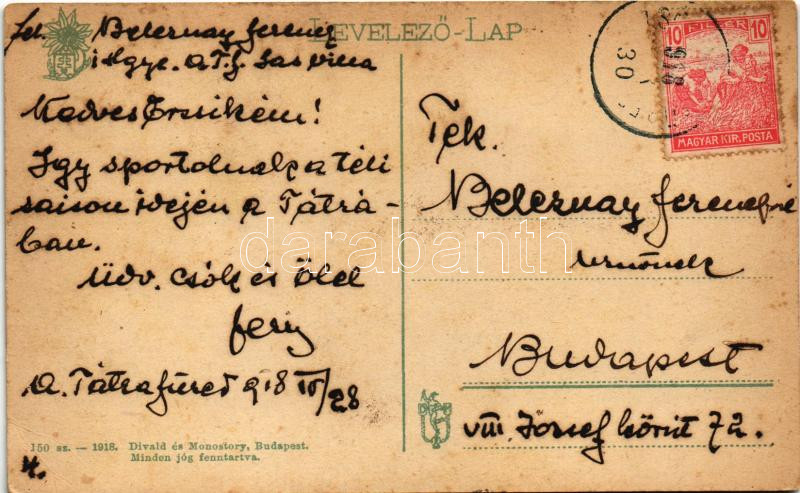 LEVELEZŐ-LAP
fel. Belernay Ferenc
Kedves Örzsikém!
Igy sportolnak a téli
saison idején a Tátrá-
ban.
Üdv. csók és ölel
Fery
A. Tátrafüred 918 III/28
150 sz. — 1918. Divald és Monostory, Budapest.
Minden jóg fenntartva.
4.
10 FILLÉR 10
MAGYAR KIR. POSTA
918
30
Tek.
Belernay Ferencné
urnőnek
Budapest
VIII József körút 72.
darabanth